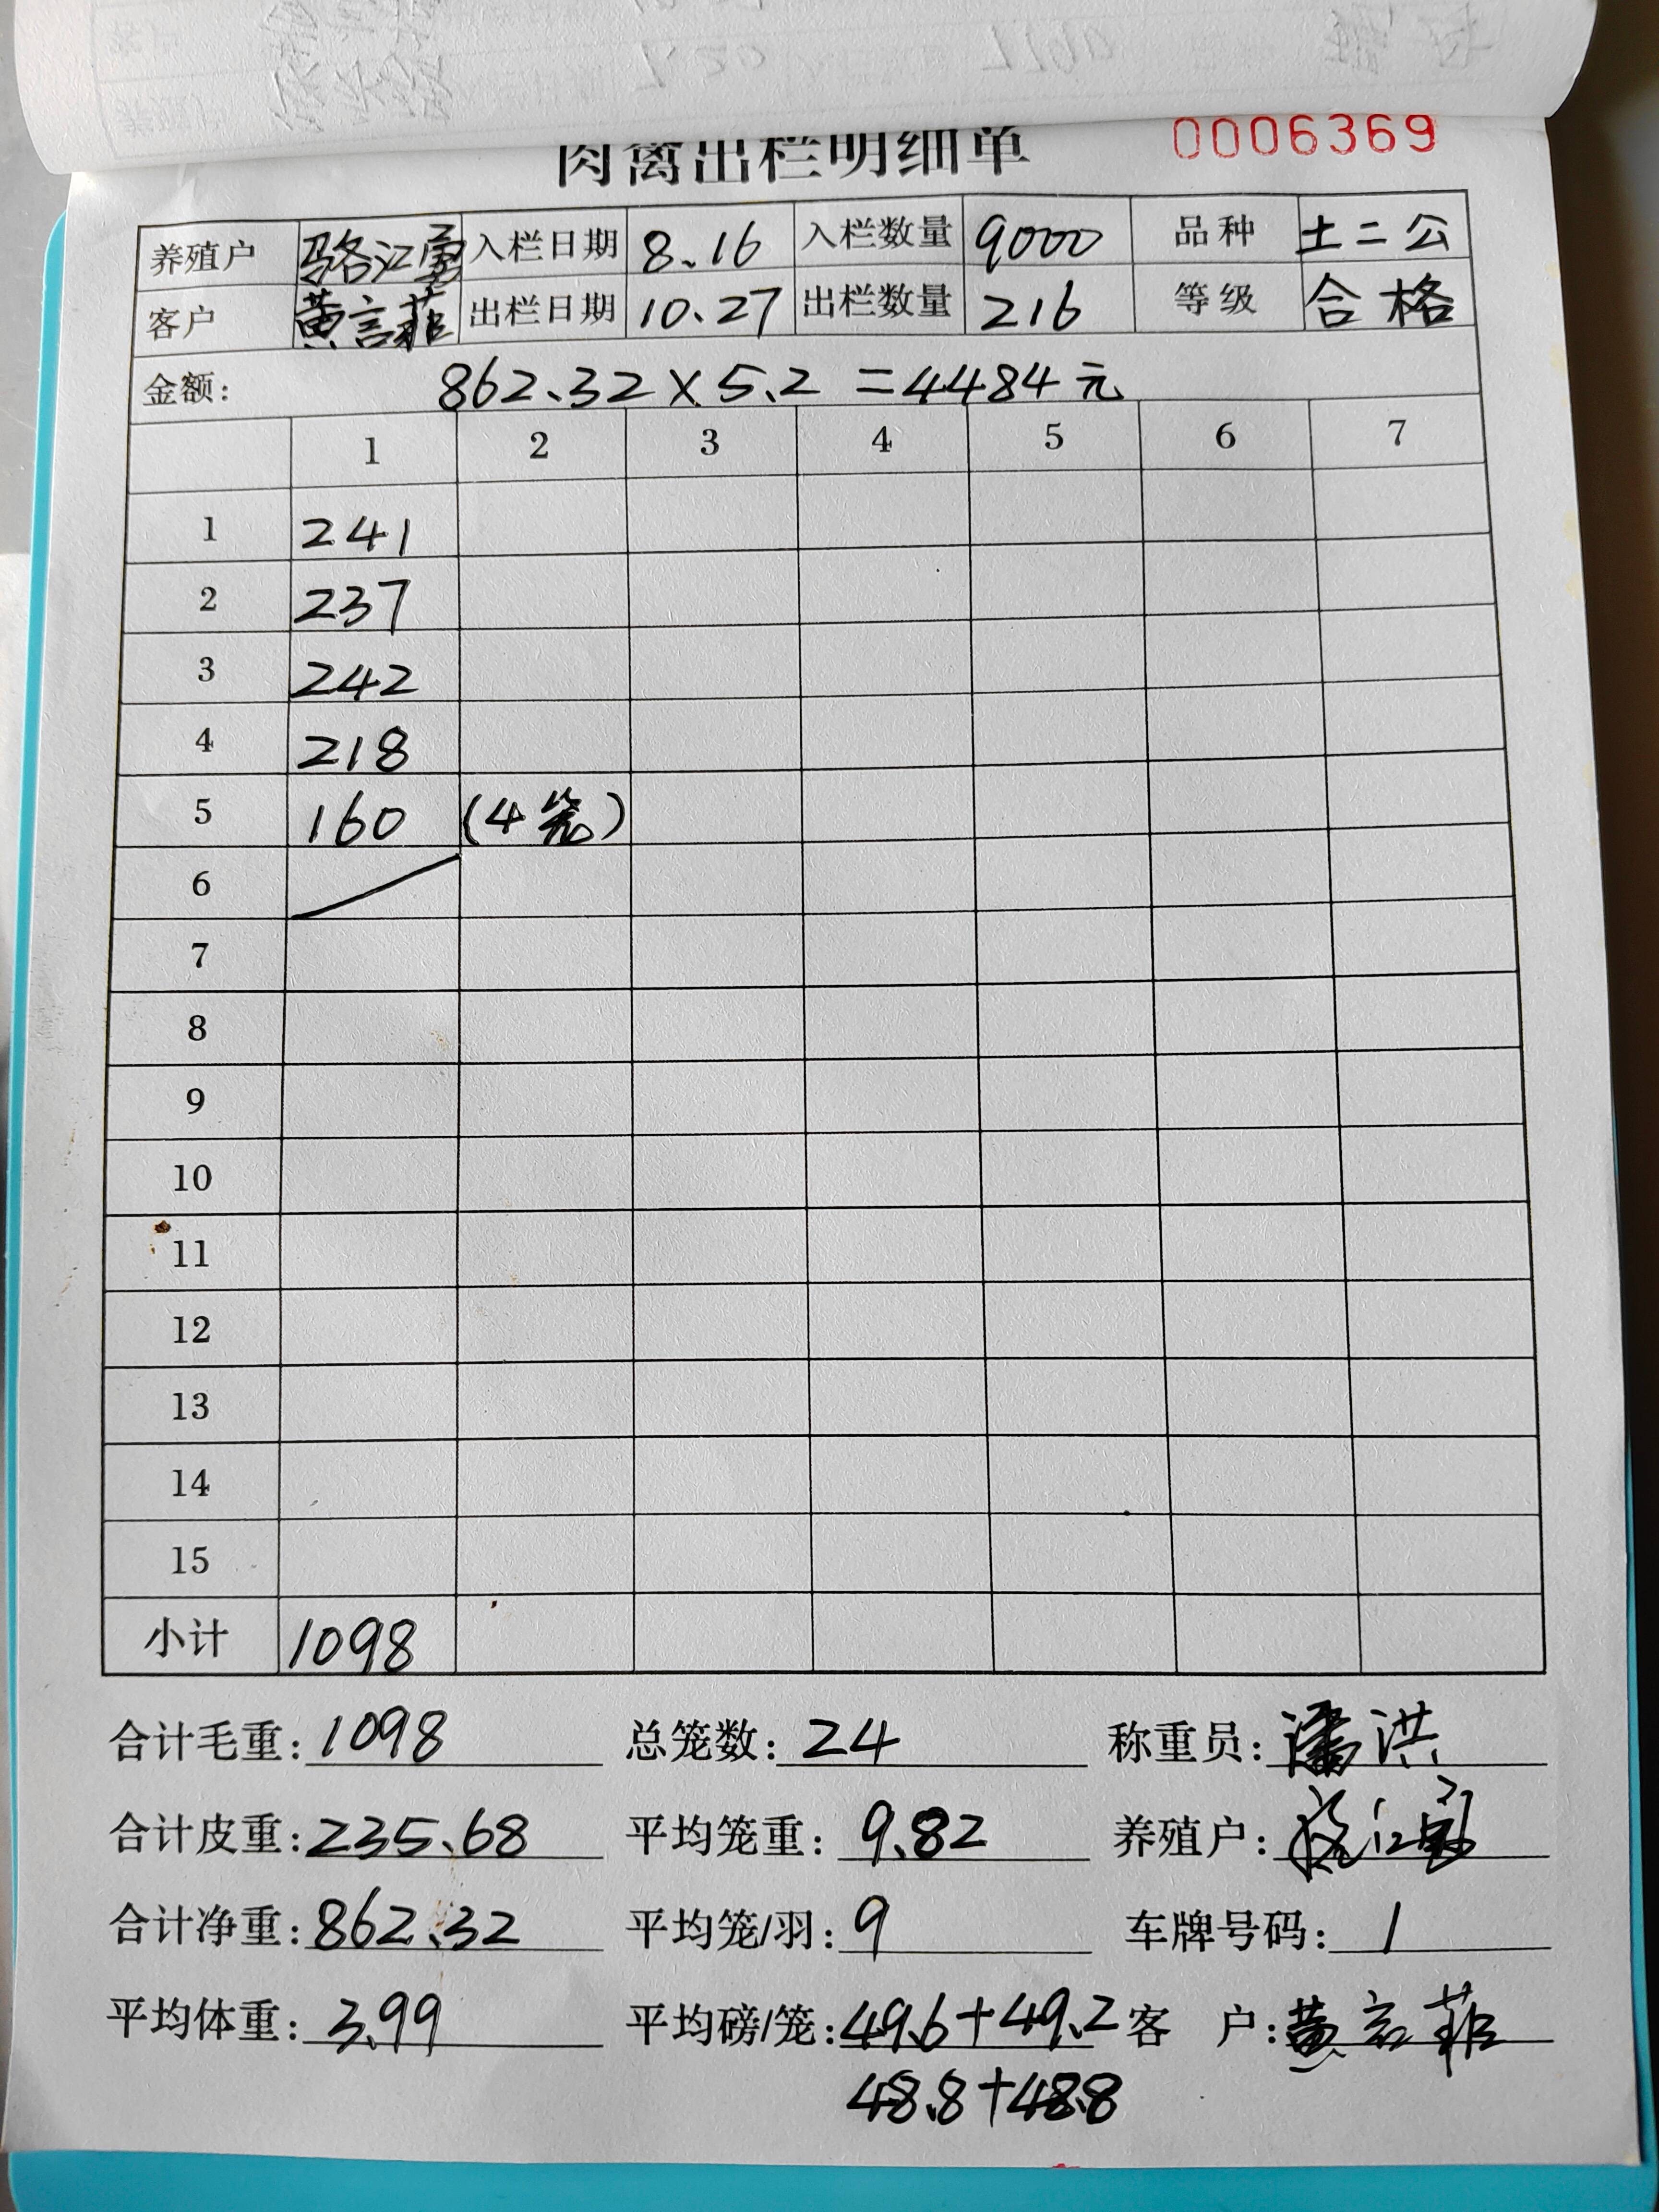 肉禽出栏明细单 0006369
养殖户 骆江勇 入栏日期 8.16 入栏数量 9000 品种 土二公
客户 黄言菲 出栏日期 10.27 出栏数量 216 等级 合格
金额: 862.32×5.2=4484元
1 2 3 4 5 6 7
1 241
2 237
3 242
4 218
5 160 (4笼)
6
7
8
9
10
11
12
13
14
15
小计 1098
合计毛重: 1098 总笼数: 24 称重员: 潘洪
合计皮重: 235.68 平均笼重: 9.82 养殖户:
合计净重: 862.32 平均笼/羽: 9 车牌号码: 1
平均体重: 3.99 平均磅/笼: 49.6+49.2 客户: 黄言菲
48.8+48.8